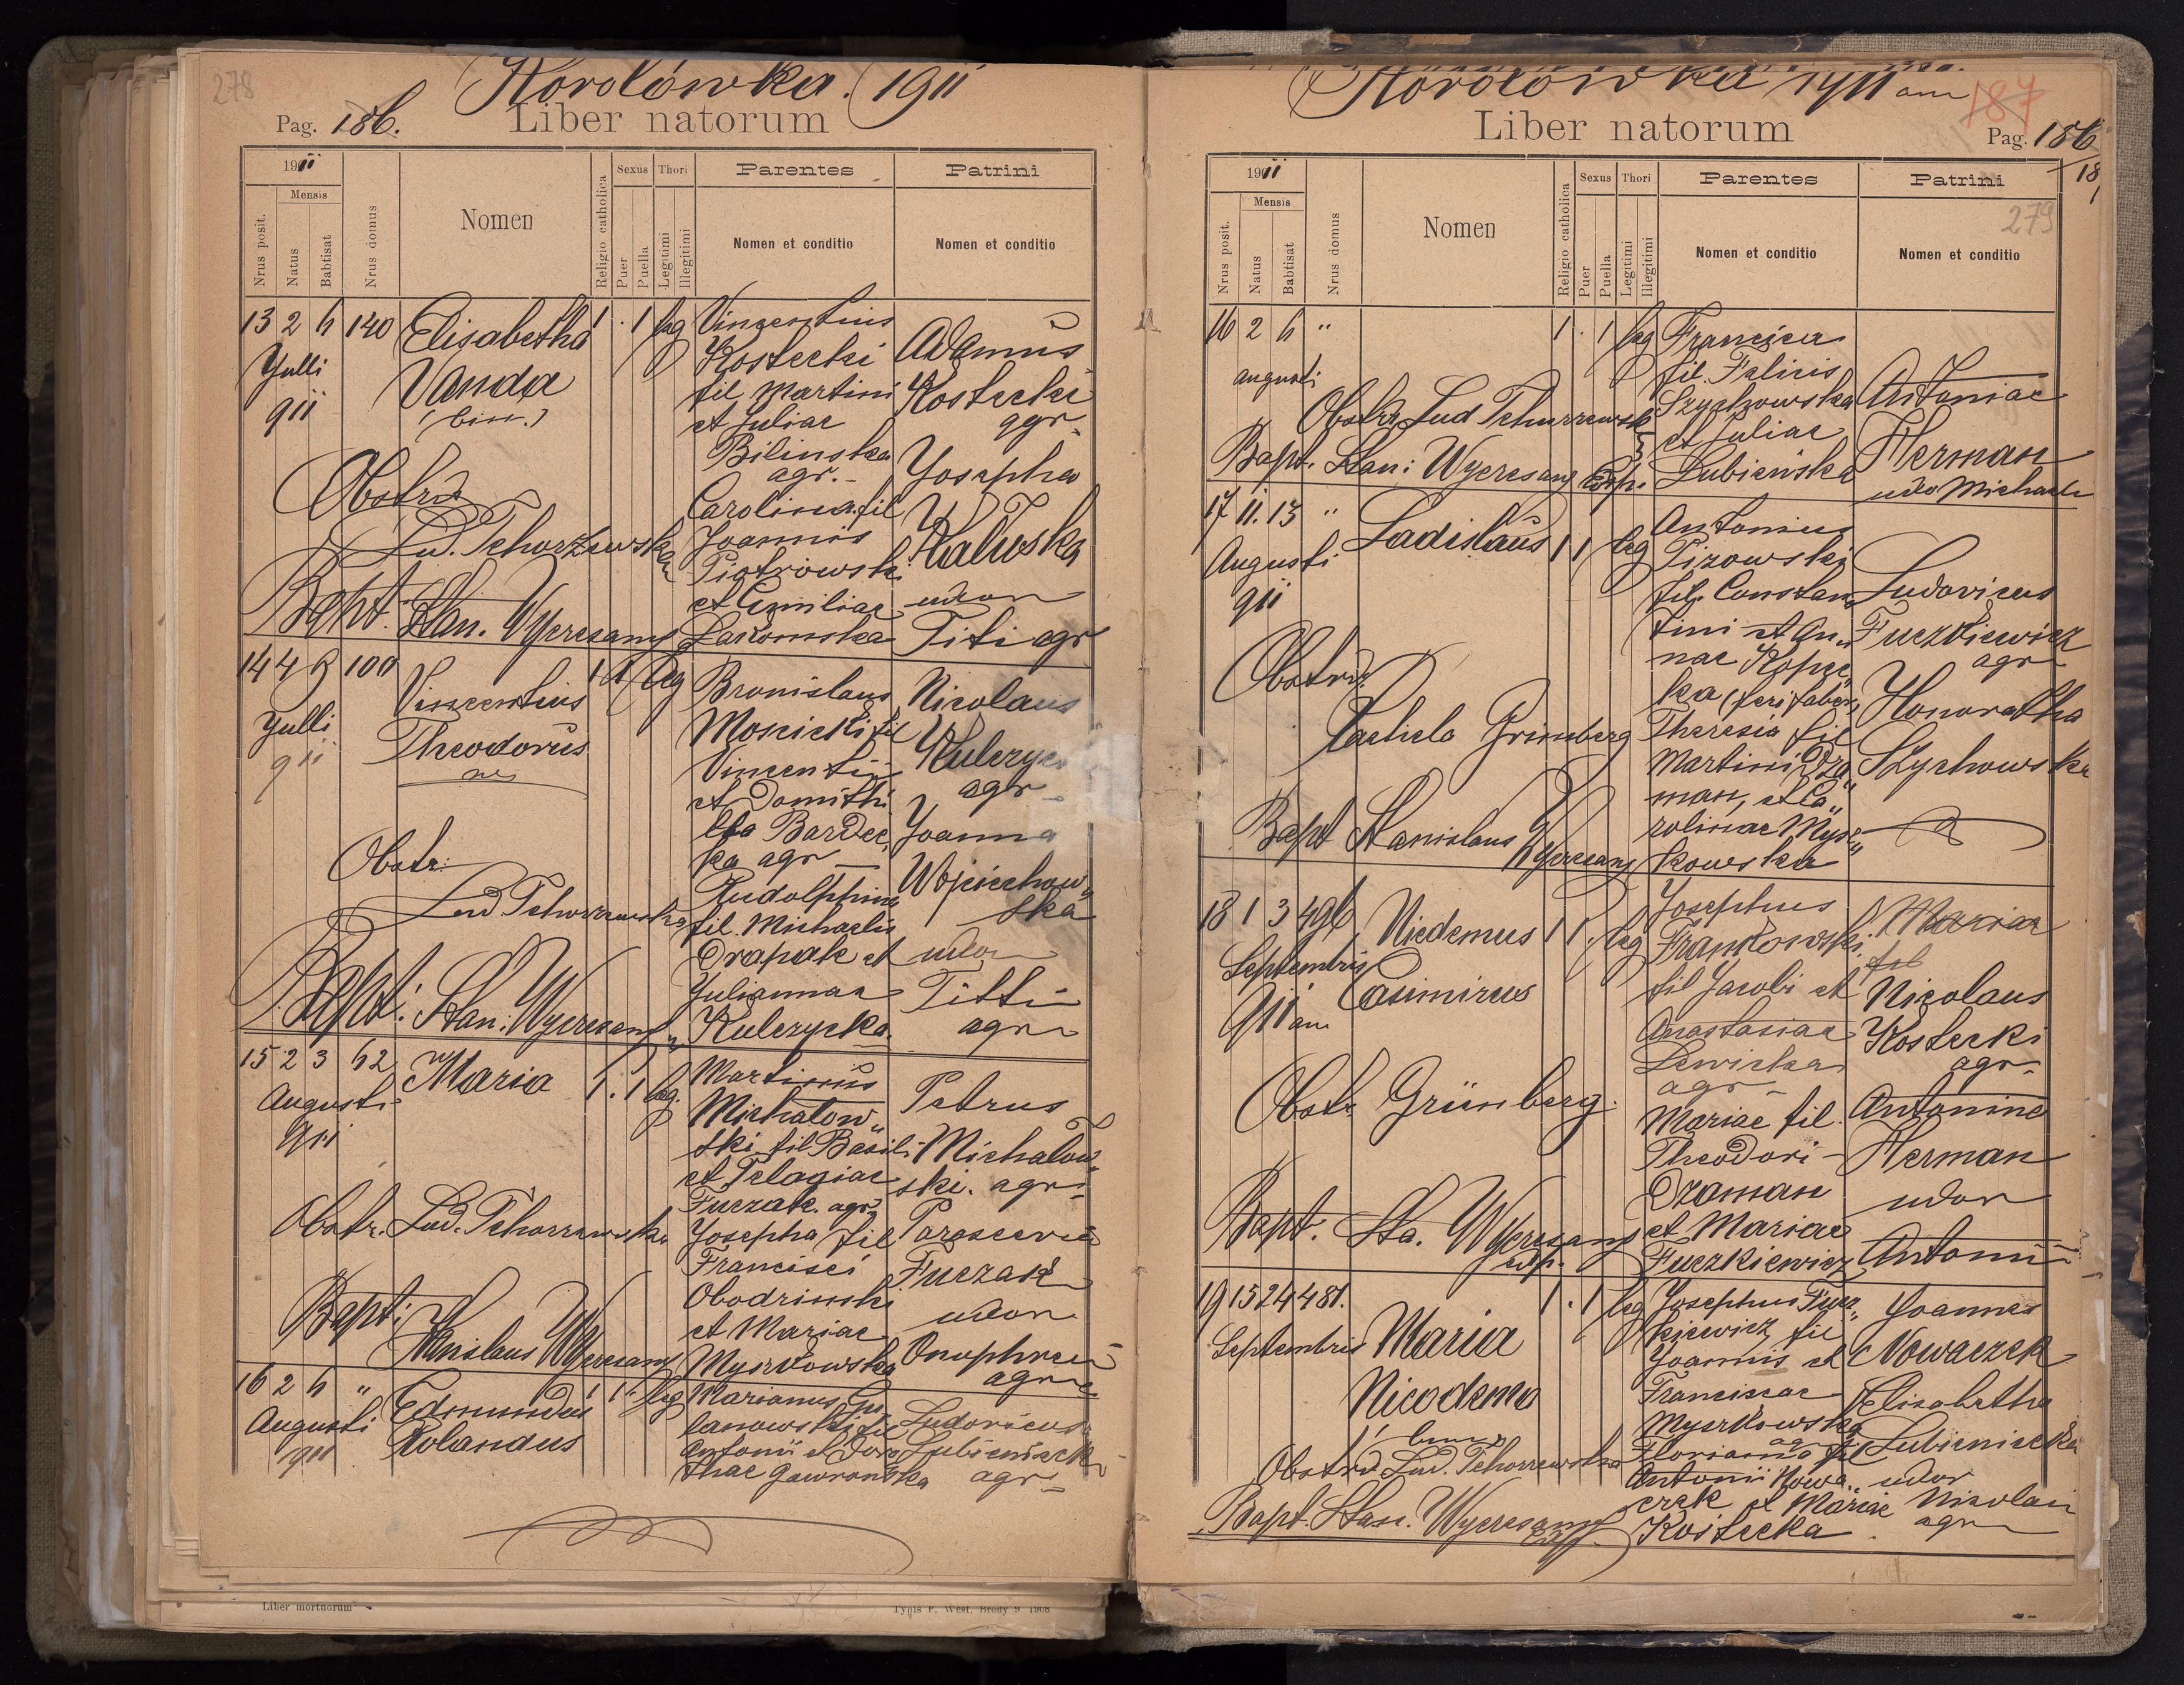 278
Korolówka. 1911
Pag. 186.
Liber natorum
1911
Mensis
Nrus posit.
Natus
Babtisat
Nrus domus
Nomen
Religio catholica
Sexus
Puer
Puella
Thori
Legitimi
Illegitimi
Parentes
Nomen et conditio
Patrini
Nomen et conditio
13 2 6 140 Elisabetha 1 . 1 leg
Yulli
911
Vanda
(bin.)
Obstrx
Lud. Tchorzewska
Bapt. Stan. Wyeresany
Vinzentius
Kostecki
fil Martini
et Juliae
Bilinska
agr.
Carolina fil
Joannis
Piotrowski
et Emiliae
Adamus
Kostecki
agr.
Yosepha
udor
Titi agr
14 4 9 100 Vinzentius 1 1 leg
Yulli
911
Theodorus
Obstr:
Lud. Tchorzewska
Bapt: Stan: Wyeresany
Bronislaus
Moscicki fil
Vincentii
et Domithi
lla Bardec,
ka agr
Rudolphina
fil. Michaelis
Drapak et
Yuliannae
Kulczycka
Nicolaus
Kulczycki
agr
Yoanna
Wojciechow„
ska
udor
Titti
agr
15 2 3 62 Maria 1 . 1 leg.
Augusti
911
Obstr. Lud. Tchorzewska
Bapt:
Stanislaus Wyeresany
Martinus
Michalow„
ski fil Basili
et Pelagiae
Fuczak. agr
Yosepha fil
Francisci
Obodrinski
et Mariae
Myszkowska
Petrus
Michalow„
ski. agr.
Parasceva
Fuczak
udor
Onuphrii
agr
16 2 6 " Edmundus 1 1 . leg
Augusti
911
Rolandus
Marianus Gu
lanowski fil
Antonii et Doro
theae Gawronska
Ludovicus
Lubieniecki
agr.
Liber mortuorum
Typis F. West, Brody 9 1908
Korolówka 1911 am
187
Liber natorum
Pag. 186
187
279
1911
Mensis
Nrus posit.
Natus
Babtisat
Nrus domus
Nomen
Religio catholica
Sexus
Puer
Puella
Thori
Legitimi
Illegitimi
Parentes
Nomen et conditio
Patrini
Nomen et conditio
16 2 6 " 1 . 1 leg
augusti
Obstr. Lud Tchorzewsk
Bapt. Stan: Wyeresany Coop.
Francisca
fil. Felicis
Szychowska
et Juliae
Lubienska
Antoniae
Herman
udo Michaeli
17 11. 13 " Ladislaus 1 1 leg
Augusti
911
Obstrx
Rachela Grinberg
Bapt Stanislaus Wyeresany
Antonius
Pizowski
fil. Constan
tini et An„
nae Kopec„
ka (feri faber)
Theresia fil
Martini Dza„
man, et Ca„
rolinae Mysz„
kowska
Ludovicus
Fuczkiewicz
agr
Honoratha
Szychowska
18 1 3 496 Niedemus 1 1 . leg
Septembris
911 am
Casimirus
Obstr. Grünberg.
Bapt. Sta. Wyeresany
Josephus
Frankowski
fil Jacobi et
Anastasiae
Lewicka
agr
Mariae fil.
Theodori
Dzaman
et Mariae
Fuczkiewicz
Mariae
fil
Nicolaus
Kostecki
agr.
Antonine
Herman
udor
Antonii
19 15 24 481. 1 . 1 leg
Septembris Maria
Nicodema
Obstrx Lud. Tchorzewska
Bapt. Stan. Wyeresany
Josephus Fucz„
kiewicz fil
Yoannis et
Franciscae
Myszkowska
Florianna fil
Antonii Nowa„
czek et Mariae
Kostecka
Yoannes
Nowaczek
Elisabetha
Lubieniecka
udor
Nikolai
agr